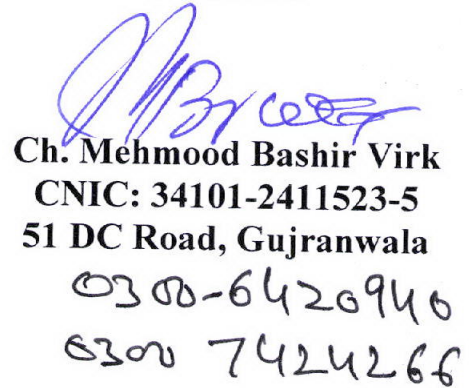 Ch. Mehmood Bashir Virk
CNIC: 34101-2411523-5
51 DC Road, Gujranwala
0300-6420940
0300 7424266